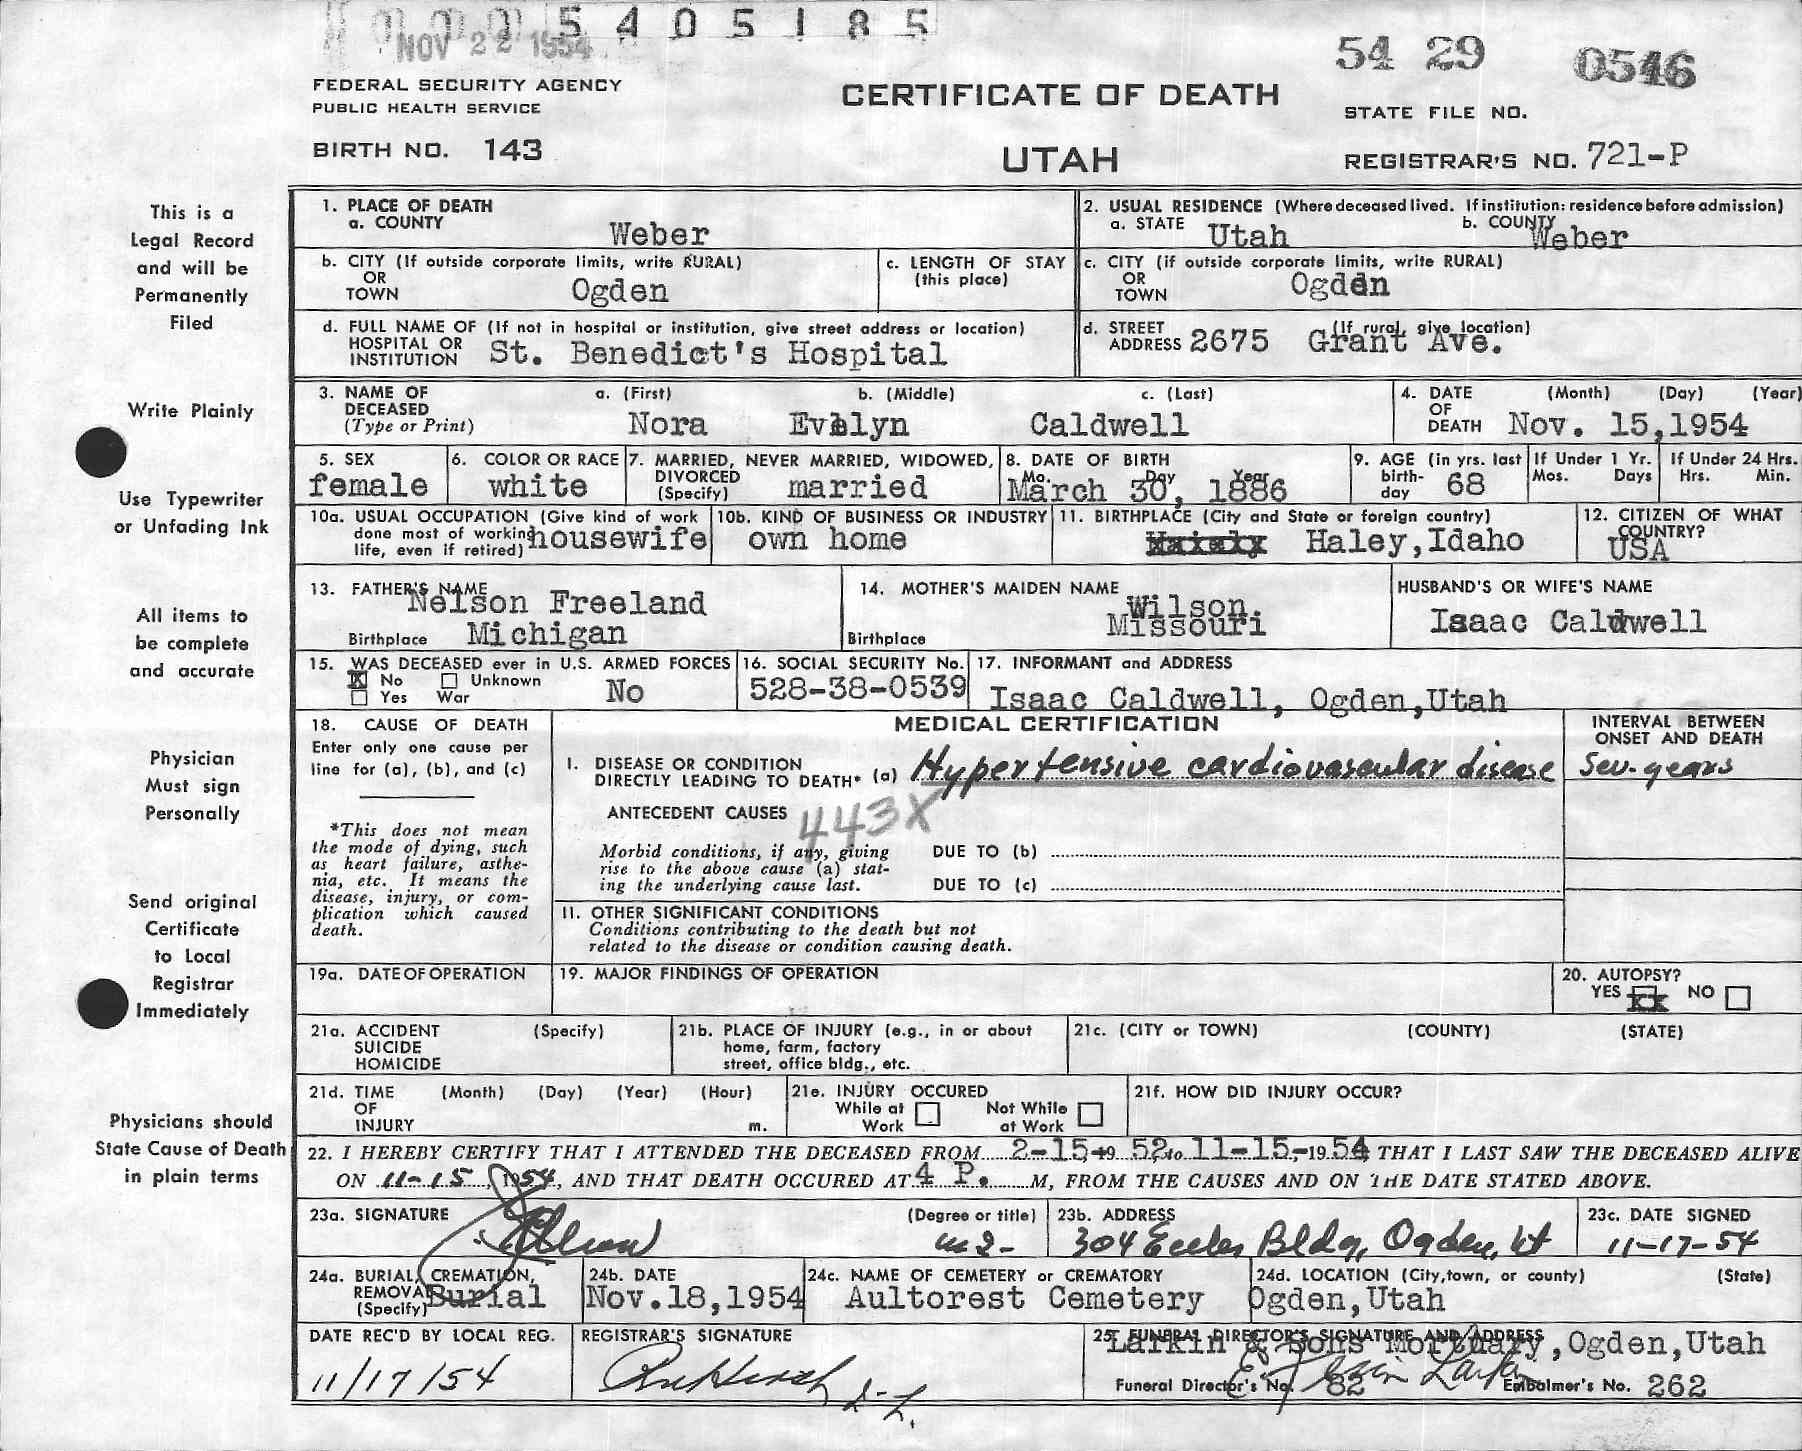 NOV 22 1954
5405185
54 29 0546
FEDERAL SECURITY AGENCY
PUBLIC HEALTH SERVICE
CERTIFICATE OF DEATH
STATE FILE NO.
BIRTH NO. 143
UTAH
REGISTRAR'S NO. 721-P
This is a
Legal Record
and will be
Permanently
Filed
Write Plainly
Use Typewriter
or Unfading Ink
All items to
be complete
and accurate
Physician
Must sign
Personally
Send original
Certificate
to Local
Registrar
Immediately
Physicians should
State Cause of Death
in plain terms
1. PLACE OF DEATH
a. COUNTY Weber
2. USUAL RESIDENCE (Where deceased lived. If institution: residence before admission)
a. STATE Utah b. COUNTY Weber
b. CITY (If outside corporate limits, write RURAL)
OR
TOWN Ogden
c. LENGTH OF STAY
(this place)
c. CITY (if outside corporate limits, write RURAL)
OR
TOWN Ogden
d. FULL NAME OF (If not in hospital or institution, give street address or location)
HOSPITAL OR
INSTITUTION St. Benedict's Hospital
d. STREET (If rural, give location)
ADDRESS 2675 Grant Ave.
3. NAME OF a. (First) b. (Middle) c. (Last)
DECEASED
(Type or Print) Nora Evelyn Caldwell
4. DATE (Month) (Day) (Year)
OF
DEATH Nov. 15,1954
5. SEX
female
6. COLOR OR RACE
white
7. MARRIED, NEVER MARRIED, WIDOWED,
DIVORCED
(Specify) married
8. DATE OF BIRTH
Mo. Day Year
March 30, 1886
9. AGE (in yrs. last
birth-
day 68
If Under 1 Yr.
Mos. Days
If Under 24 Hrs.
Hrs. Min.
10a. USUAL OCCUPATION (Give kind of work
done most of working
life, even if retired) housewife
10b. KIND OF BUSINESS OR INDUSTRY
own home
11. BIRTHPLACE (City and State or foreign country)
Haley,Idaho
12. CITIZEN OF WHAT
COUNTRY?
USA
13. FATHER'S NAME
Nelson Freeland
Birthplace Michigan
14. MOTHER'S MAIDEN NAME
Wilson.
Birthplace Missouri
HUSBAND'S OR WIFE'S NAME
Isaac Caldwell
15. WAS DECEASED ever in U.S. ARMED FORCES
X No Unknown
Yes War No
16. SOCIAL SECURITY No.
528-38-0539
17. INFORMANT and ADDRESS
Isaac Caldwell, Ogden,Utah
18. CAUSE OF DEATH
Enter only one cause per
line for (a), (b), and (c)
*This does not mean
the mode of dying, such
as heart failure, asthe-
nia, etc. It means the
disease, injury, or com-
plication which caused
death.
MEDICAL CERTIFICATION
INTERVAL BETWEEN
ONSET AND DEATH
I. DISEASE OR CONDITION
DIRECTLY LEADING TO DEATH* (a) Hypertensive cardiovascular disease Sev. years
ANTECEDENT CAUSES 443X
Morbid conditions, if any, giving
rise to the above cause (a) stat-
ing the underlying cause last.
DUE TO (b)
DUE TO (c)
II. OTHER SIGNIFICANT CONDITIONS
Conditions contributing to the death but not
related to the disease or condition causing death.
19a. DATE OF OPERATION
19. MAJOR FINDINGS OF OPERATION
20. AUTOPSY?
YES XX NO
21a. ACCIDENT (Specify)
SUICIDE
HOMICIDE
21b. PLACE OF INJURY (e.g., in or about
home, farm, factory
street, office bldg., etc.
21c. (CITY or TOWN) (COUNTY) (STATE)
21d. TIME (Month) (Day) (Year) (Hour)
OF
INJURY m.
21e. INJURY OCCURED
While at Work Not While at Work
21f. HOW DID INJURY OCCUR?
22. I HEREBY CERTIFY THAT I ATTENDED THE DECEASED FROM 2-15-19 52 to 11-15,-19 54, THAT I LAST SAW THE DECEASED ALIVE
ON 11-15, 1954, AND THAT DEATH OCCURED AT 4 P. M, FROM THE CAUSES AND ON THE DATE STATED ABOVE.
23a. SIGNATURE (Degree or title)
23b. ADDRESS
304 Eccles Bldg, Ogden, Ut
23c. DATE SIGNED
11-17-54
24a. BURIAL, CREMATION,
REMOVAL
(Specify) Burial
24b. DATE
Nov.18,1954
24c. NAME OF CEMETERY or CREMATORY
Aultorest Cemetery
24d. LOCATION (City,town, or county) (State)
Ogden,Utah
DATE REC'D BY LOCAL REG.
11/17/54
REGISTRAR'S SIGNATURE
25. FUNERAL DIRECTOR'S SIGNATURE AND ADDRESS
Larkin & Sons Mortuary,Ogden,Utah
Funeral Director's No. 82 Embalmer's No. 262